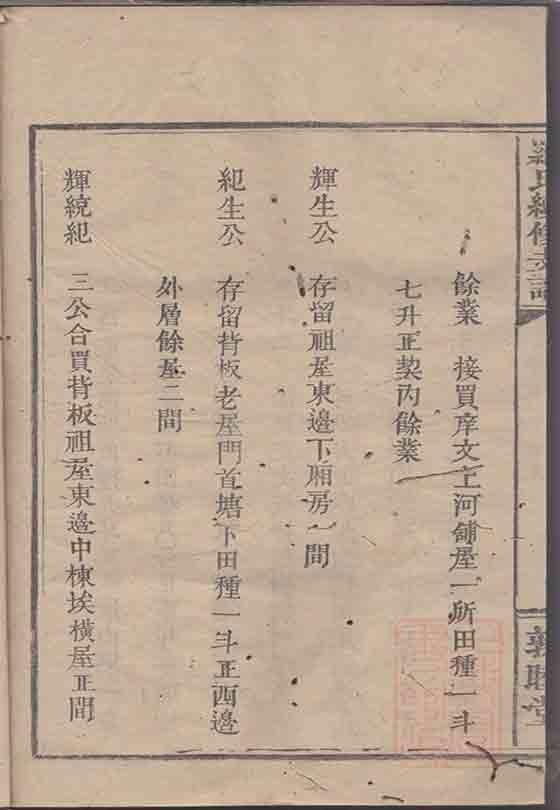 羅氏經修支譜
敦睦堂
餘業 接買庠文上河舖屋一所田種一斗
七升正契內餘業
輝生公 存留祖屋東邊下廂房一間
紀生公 存留背板老屋門首塘下田種一斗正西邊
外層餘屋二間
輝統紀 三公合買背板祖屋東邊中棟挨橫屋正間